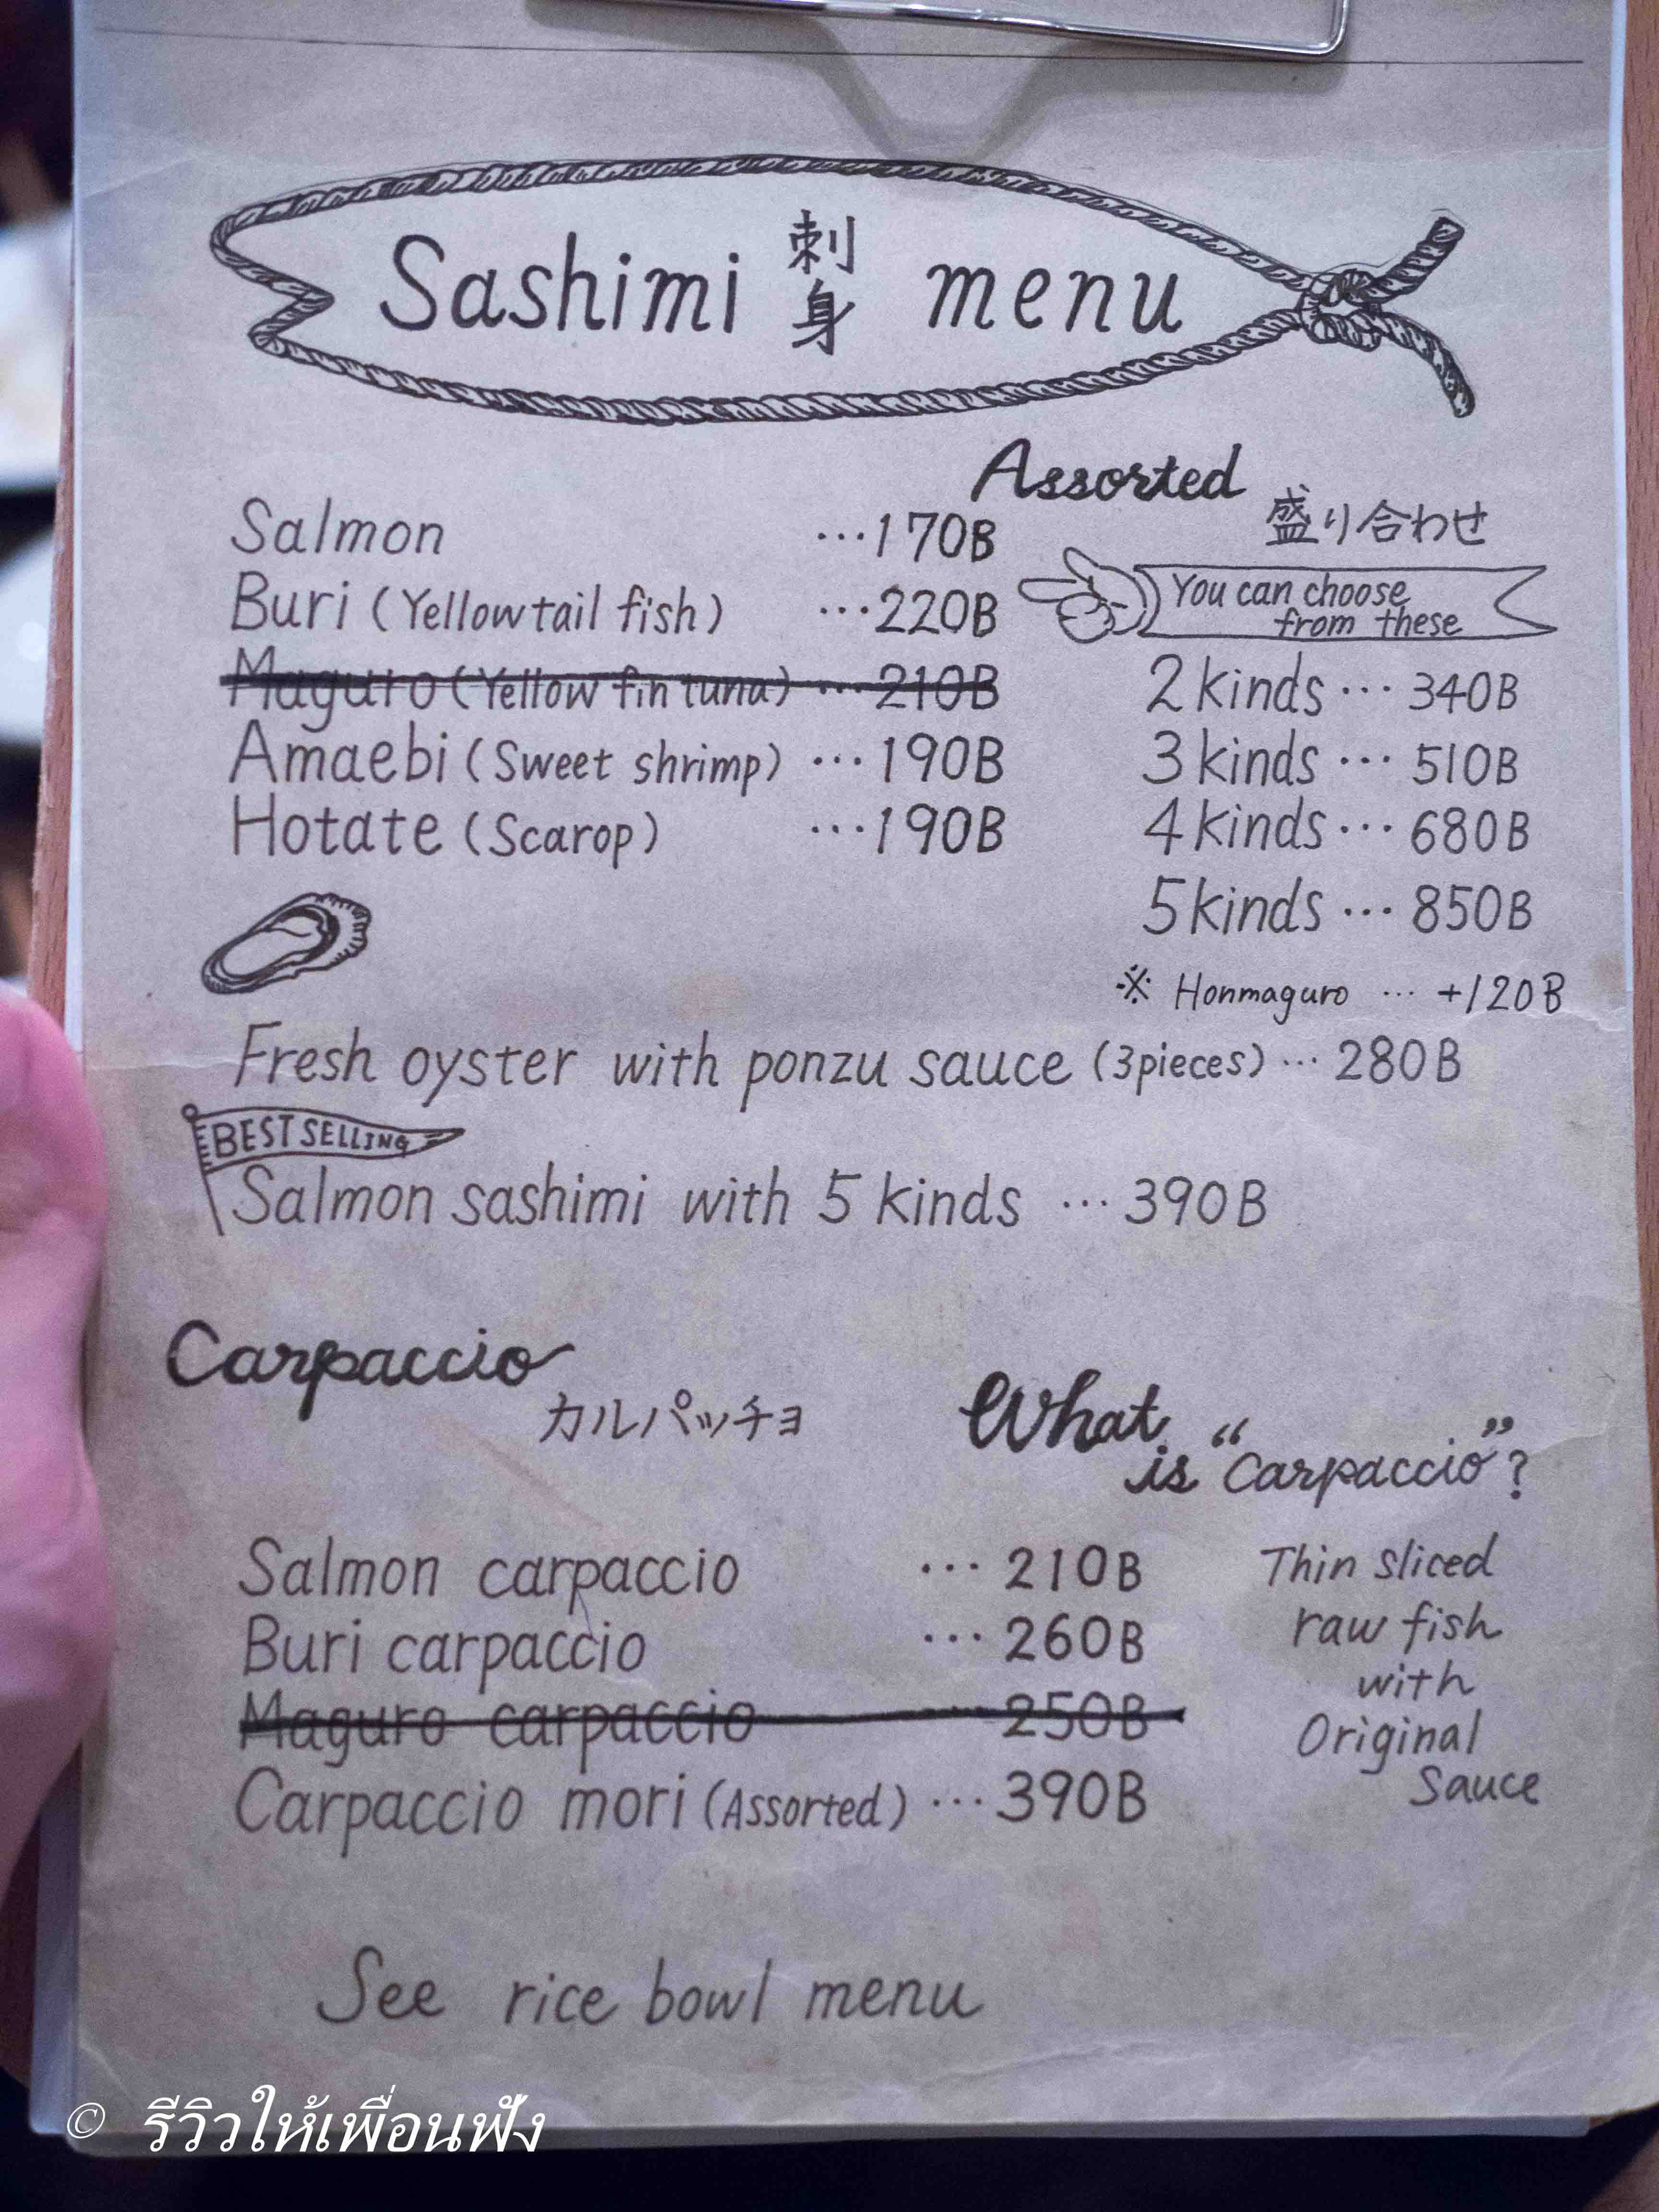 Sashimi 刺身 menu
Salmon …170B
Buri (Yellowtail fish) …220B
Maguro (Yellow fin tuna) …210B
Amaebi (Sweet shrimp) …190B
Hotate (Scarop) …190B
Assorted
盛り合わせ
You can choose
from these
2 kinds … 340B
3 kinds … 510B
4 kinds … 680B
5 kinds … 850B
※ Honmaguro … +120B
Fresh oyster with ponzu sauce (3pieces) … 280B
BEST SELLING
Salmon sashimi with 5 kinds … 390B
Carpaccio
カルパッチョ
What
is “Carpaccio”?
Salmon carpaccio … 210B
Buri carpaccio … 260B
Maguro carpaccio … 250B
Carpaccio mori (Assorted) … 390B
Thin sliced
raw fish
with
Original
Sauce
See rice bowl menu
© รีวิวให้เพื่อนฟัง